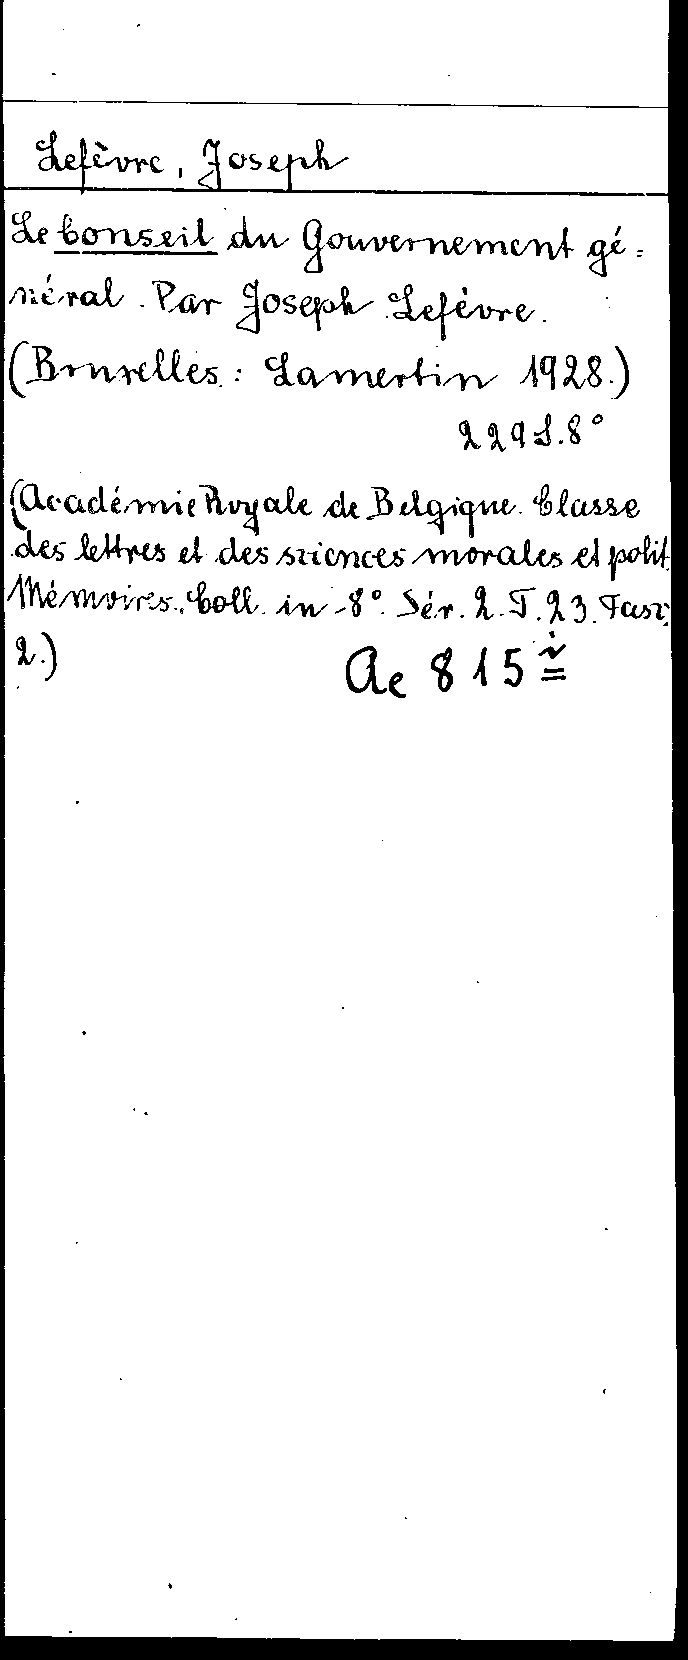 Lefèvre, Joseph
Le Conseil du Gouvernement gé=
néral. Par Joseph Lefèvre.
(Bruxelles: Lamertin 1928.)
229 S. 8°
(Académie Royale de Belgique. Classe
des lettres et des sciences morales et polit.
Mémoires. Coll. in-8°. Sér. 2. T. 23. Fasc.
2.)
Ae 815